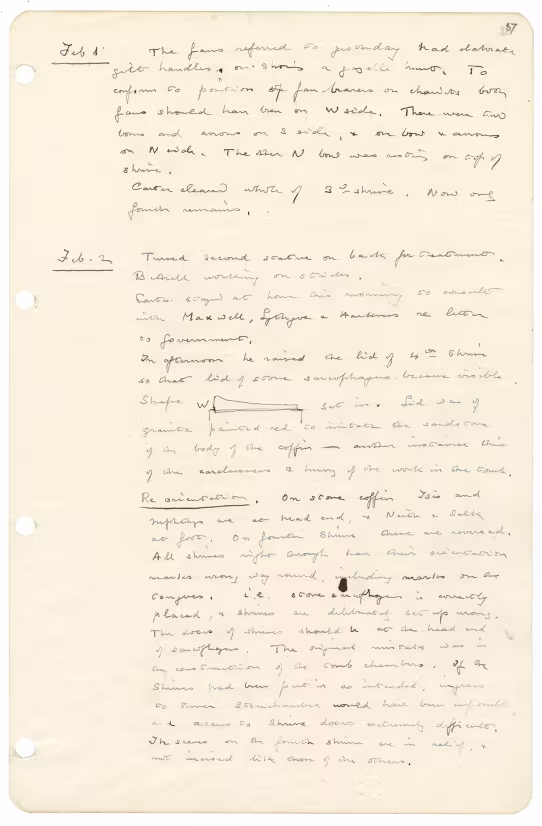 37
Feb 1. The fans referred to yesterday had elaborate
gilt handles, one shows a gazelle hunt. To
conform to positions of fan bearers on chariots both
fans should have been on W side. There were two
bows and arrows on S side, & one bow & arrows
on N side. The N bow was resting on top of
shrine.
Carter cleared whole of 3rd shrine. Now only
fourth remains.
Feb. 2 Turned second statue on back for treatment.
Bethell working on sticks.
Carter stayed at home this morning to consult
with Maxwell, Lythgoe & Harkness re letter
to government.
In afternoon he raised the lid of 4th shrine
so that lid of stone sarcophagus became visible.
Shape W set in. Lid was of
granite painted red to imitate the sandstone
of the body of the coffin — another instance this
of the carelessness & hurry of the work in the tomb.
Re orientation. On stone coffin Isis and
Nephthys are at head end, & Neith & Selk
at foot. On fourth shrine these are reversed.
All shrines right through have their orientation
marks wrong way round, including marks on the
tongues. i.e. stone sarcophagus is correctly
placed, & shrines are deliberately set up wrong.
The doors of shrines should be at the head end
of sarcophagus. The original mistake was in
the construction of the tomb chambers. If the
shrines had been put in as intended, ingress
to inner storechamber would have been impossible
and access to shrine doors extremely difficult.
The scenes on the fourth shrine are in relief, &
not incised like those of the others.